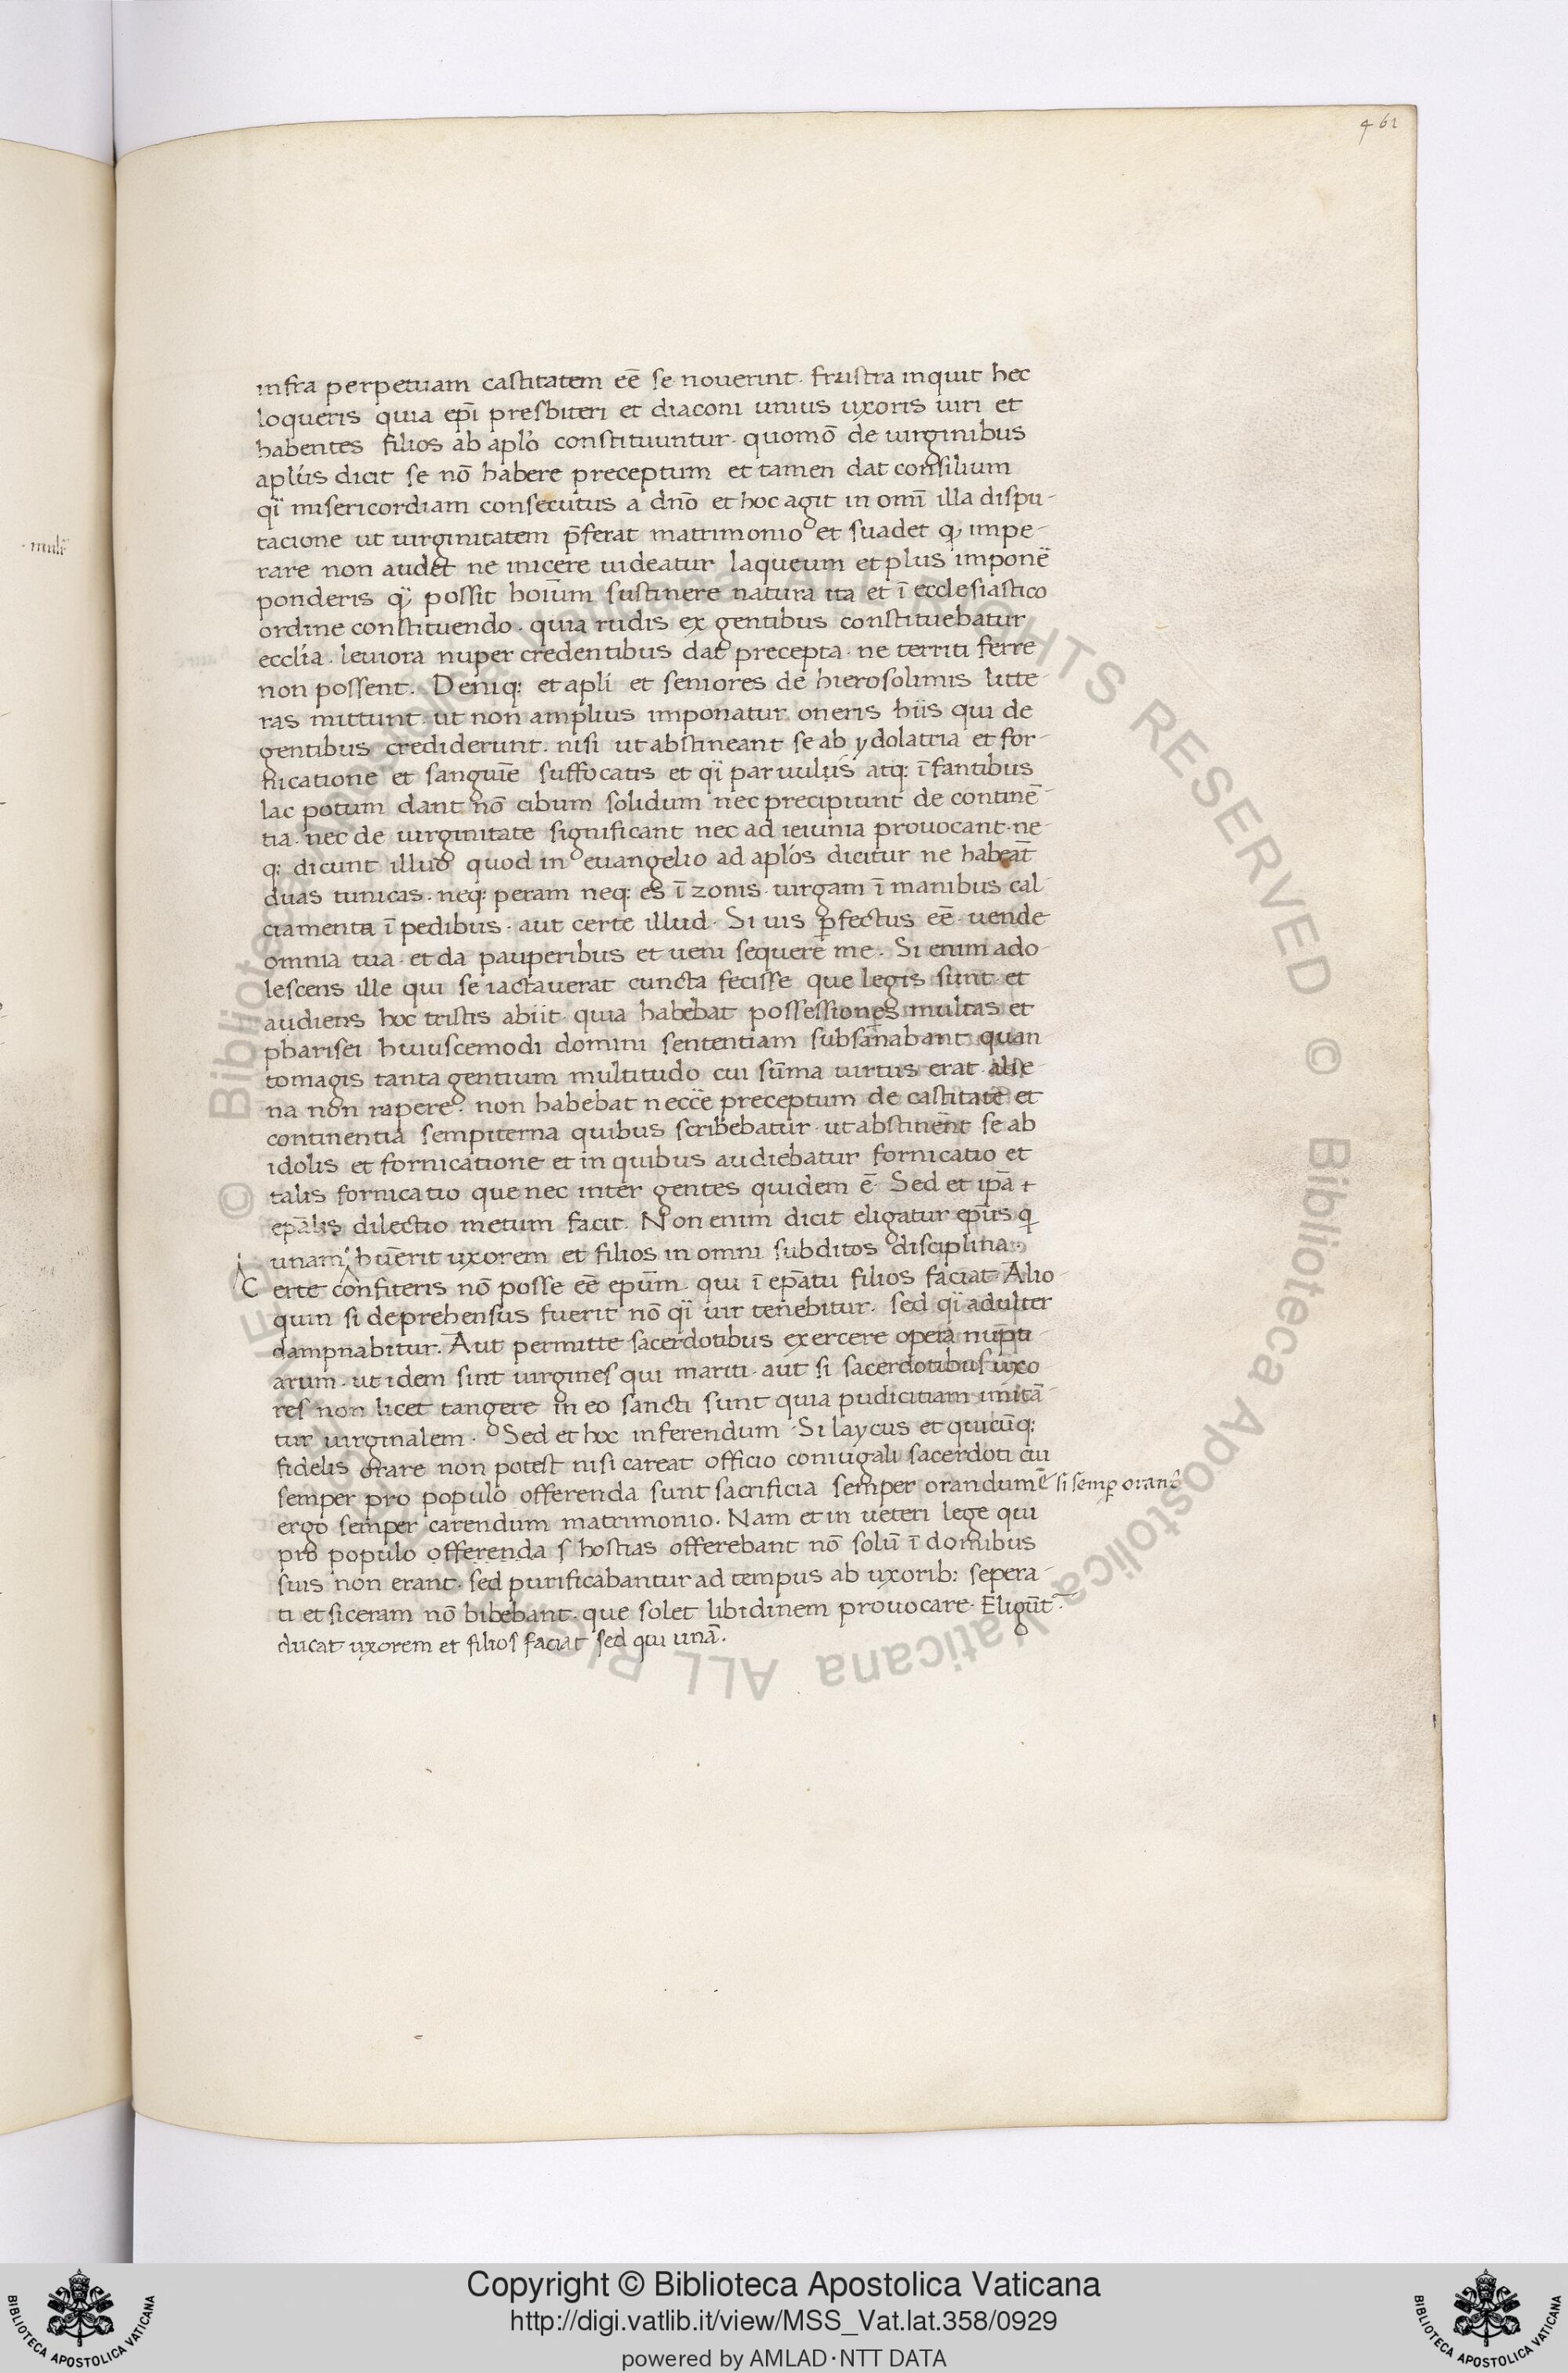 461
infra perpetuam castitatem eē se nouerint. frustra inquit hec
loqueris quia ep̄i presbiteri et diaconi unius uxoris uiri et
habentes filios ab apl̄o constituuntur. quomō de uirginibus
apl̄us dicit se nō habere preceptum et tamen dat consilium
qï misericordiam consecutus a dn̄o et hoc agit in om̄i illa dispu-
tacione ut uirginitatem p̄ferat matrimonio et suadet q, impe-
rare non audet ne inicere uideatur laqueum et plus imponē
ponderis q̈, possit hoīum sustinere natura ita et ī ecclesiastico
ordine constituendo. quia rudis ex gentibus constituebatur
ecclīa. leuiora nuper credentibus dat precepta. ne territi ferre
non possent. Deniq: et apl̄i et seniores de hierosolimis litte-
ras mittunt. ut non amplius imponatur oneris hiis qui de
gentibus crediderunt. nisi ut abstineant se ab ydolatria et for-
nicatione et sanguīe suffocatis et qï paruulis atq: īfantibus
lac potum dant nō cibum solidum nec precipiunt de continē-
tia. nec de uirginitate significant nec ad ieiunia prouocant. ne-
q: dicunt illud quod in euangelio ad apl̄os dicitur ne habeāt
duas tunicas. neq: peram neq: es ī zonis. uirgam ī manibus cal-
ciamenta ī pedibus. aut certe illud. Si uis p̱fectus eē. uende
omnia tua. et da pauperibus et ueni sequere me. Si enim ado-
lescens ille qui se iactauerat cuncta fecisse que legis sunt. et
audiens hoc tristis abiit. quia habebat possessiones multas et
pharisei huiuscemodi domini sententiam subsānabant. quan
tomagis tanta gentium multitudo cui sūma uirtus erat. alie-
na non rapere. non habebat neccē preceptum de castitate et
continentia sempiterna quibus scribebatur. ut abstinēnt se ab
idolis et fornicatione et in quibus audiebatur fornicatio et
talis fornicatio que nec inter gentes quidem ē. Sed et ip̄a +
ep̄alis dilectio metum facit. Non enim dicit eligatur ep̄us q
unam hūerit uxorem et filios in omni subditos disciplina.
Certe confiteris nō posse eē epūm. qui ī ep̄atu filios faciat. Alio-
quin si deprehensus fuerit nō qï uir tenebitur. sed qï adulter
dampnabitur. Aut permitte sacerdotibus exercere opera nupti-
arum. ut idem sint uirgines qui mariti. aut si sacerdotibus uxo-
res non licet tangere in eo sancti sunt quia pudicitiam imitā-
tur uirginalem. Sed et hoc inferendum. Si laycus et quicūq:
fidelis orare non potest nisi careat officio coniugali sacerdoti cui
semper pro populo offerenda sunt sacrificia semper orandum ē si semp̱ orand̄
ergo semper carendum matrimonio. Nam et in ueteri lege qui
pro populo offerenda s hostias offerebant nō solū ī domibus
suis non erant. sed purificabantur ad tempus ab uxorib: sepera-
ti et siceram nō bibebant. que solet libidinem prouocare. Eligūt̄.
ducat uxorem et filios faciat sed qui unā.
·mulī
Copyright © Biblioteca Apostolica Vaticana
http://digi.vatlib.it/view/MSS_Vat.lat.358/0929
powered by AMLAD·NTT DATA
BIBLIOTECA APOSTOLICA VATICANA
BIBLIOTECA APOSTOLICA VATICANA
© Biblioteca Apostolica Vaticana ALL RIGHTS RESERVED © Biblioteca Apostolica Vaticana ALL RIGHTS RESERVED